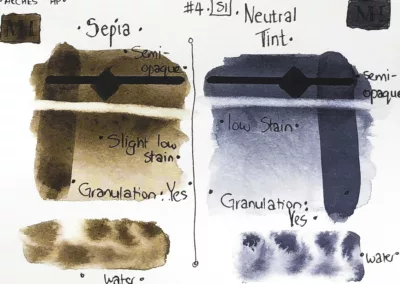 ARCHES HP
#4. S1
MH
MH
Sepia
Semi-
opaque
Slight low
stain.
Granulation: Yes
water
Neutral
Tint.
semi-
opaque
low Stain.
Granulation:
Yes
water